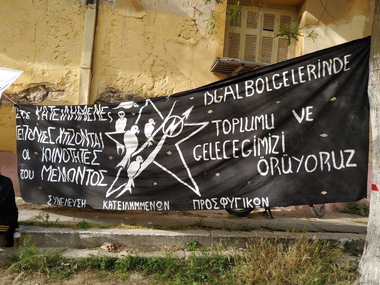 ΣΤΙΣ ΚΑΤΕΙΛΗΜΕΝΕΣ
ΓΕΙΤΟΝΙΕΣ ΧΤΙΖΟΝΤΑΙ
ΟΙ ΚΟΙΝΟΤΗΤΕΣ
του ΜΕΛΛΟΝΤΟΣ
İŞGAL BÖLGELERİNDE
TOPLUMU VE
GELECEĞİMİZİ
ÖRÜYORUZ
ΣΥΝΕΛΕΥΣΗ ΚΑΤΕΙΛΗΜΜΕΝΩΝ ΠΡΟΣΦΥΓΙΚΩΝ